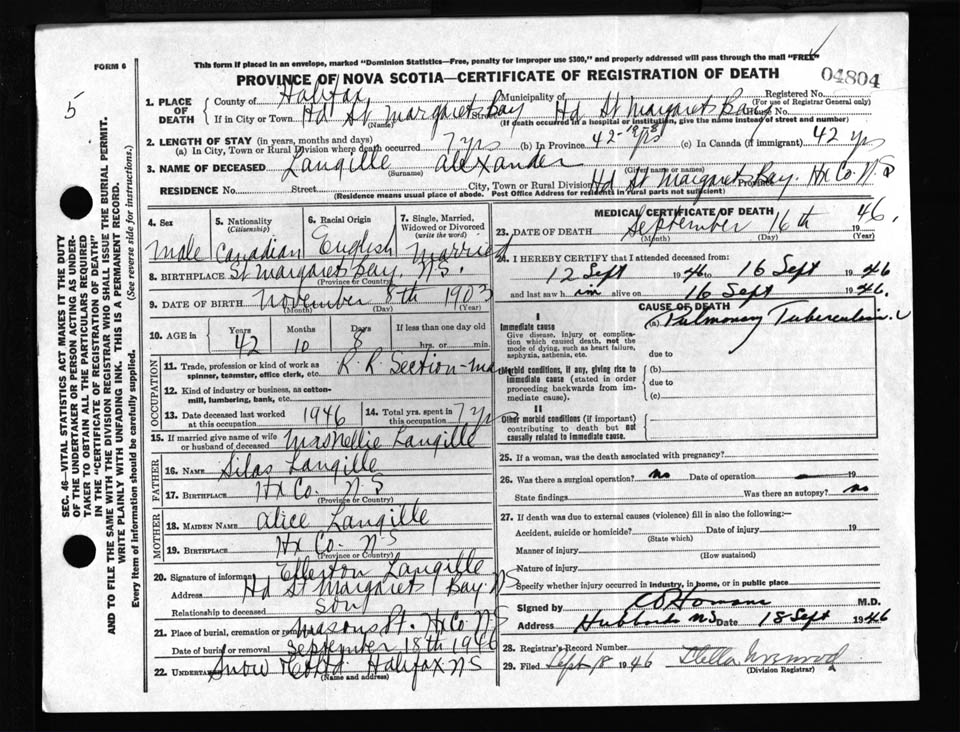 FORM 6
This form if placed in an envelope, marked "Dominion Statistics—Free, penalty for improper use $300," and properly addressed will pass through the mail "FREE"
PROVINCE OF NOVA SCOTIA—CERTIFICATE OF REGISTRATION OF DEATH
04804
5
SEC. 46—VITAL STATISTICS ACT MAKES IT THE DUTY
OF THE UNDERTAKER OR PERSON ACTING AS UNDER-
TAKER TO OBTAIN ALL THE PARTICULARS REQUIRED
IN THE "CERTIFICATE OF REGISTRATION OF DEATH"
AND TO FILE THE SAME WITH THE DIVISION REGISTRAR WHO SHALL ISSUE THE BURIAL PERMIT.
WRITE PLAINLY WITH UNFADING INK. THIS IS A PERMANENT RECORD.
Every item of information should be carefully supplied. (See reverse side for instructions.)
1. PLACE OF DEATH
County of Halifax Municipality of Registered No.
(For use of Registrar General only)
If in City or Town Hd St Margarets Bay Street Hd St Margarets Bay House No.
(Name) (If death occurred in a hospital or institution, give the name instead of street and number)
2. LENGTH OF STAY (in years, months and days)
(a) In City, Town or Rural Division where death occurred 7 yrs (b) In Province 42 yrs (c) In Canada (if immigrant) 42 yrs
3. NAME OF DECEASED Langille Alexander
(Surname) (Given name or names)
RESIDENCE No. Street City, Town or Rural Division Hd St Margarets Bay. Hx Co. N.S Province
(Residence means usual place of abode. Post Office Address for residents in rural parts not sufficient)
4. Sex Male
5. Nationality (Citizenship) Canadian
6. Racial Origin English
7. Single, Married, Widowed or Divorced (write the word) Married
8. BIRTHPLACE St Margarets Bay. N.S.
(Province or Country)
9. DATE OF BIRTH November 8th 1903
(Month) (Day) (Year)
10. AGE in Years 42 Months 10 Days 8 If less than one day old hrs. or min.
OCCUPATION
11. Trade, profession or kind of work as spinner, teamster, office clerk, etc. R.R. Section-man
12. Kind of industry or business, as cotton-mill, lumbering, bank, etc.
13. Date deceased last worked at this occupation 1946
14. Total yrs. spent in this occupation 7 yrs
15. If married give name of wife or husband of deceased Mrs Nellie Langille
FATHER
16. NAME Silas Langille
17. BIRTHPLACE Hx Co. N.S
(Province or Country)
MOTHER
18. MAIDEN NAME Alice Langille
19. BIRTHPLACE Hx Co. N.S
(Province or Country)
20. Signature of informant Ellerton Langille
Address Hd St Margarets Bay. N.S
Relationship to deceased son
21. Place of burial, cremation or removal Masons Pt. Hx Co N.S
Date of burial or removal September 18th 1946
22. UNDERTAKER Snow & Co Ltd. Halifax NS
(Name and address)
MEDICAL CERTIFICATE OF DEATH
23. DATE OF DEATH September 16th 1946.
(Month) (Day) (Year)
24. I HEREBY CERTIFY that I attended deceased from:
12 Sept 1946 to 16 Sept 1946
and last saw him alive on 16 Sept 1946.
CAUSE OF DEATH
I
Immediate cause
Give disease, injury or complication which caused death, not the mode of dying, such as heart failure, asphyxia, asthenia, etc.
(a) Pulmonary Tuberculosis
due to
Morbid conditions, if any, giving rise to immediate cause (stated in order proceeding backwards from immediate cause).
(b)
due to
(c)
II
Other morbid conditions (if important) contributing to death but not causally related to immediate cause.
25. If a woman, was the death associated with pregnancy?
26. Was there a surgical operation? no Date of operation 19
State findings Was there an autopsy? no
27. If death was due to external causes (violence) fill in also the following:—
Accident, suicide or homicide? Date of injury 19
(State which)
Manner of injury
(How sustained)
Nature of injury
Specify whether injury occurred in industry, in home, or in public place
Signed by M.D.
Address Hubbards NS Date 18 Sept 1946
28. Registrar's Record Number
29. Filed Sept 18 1946 Stella
(Division Registrar)